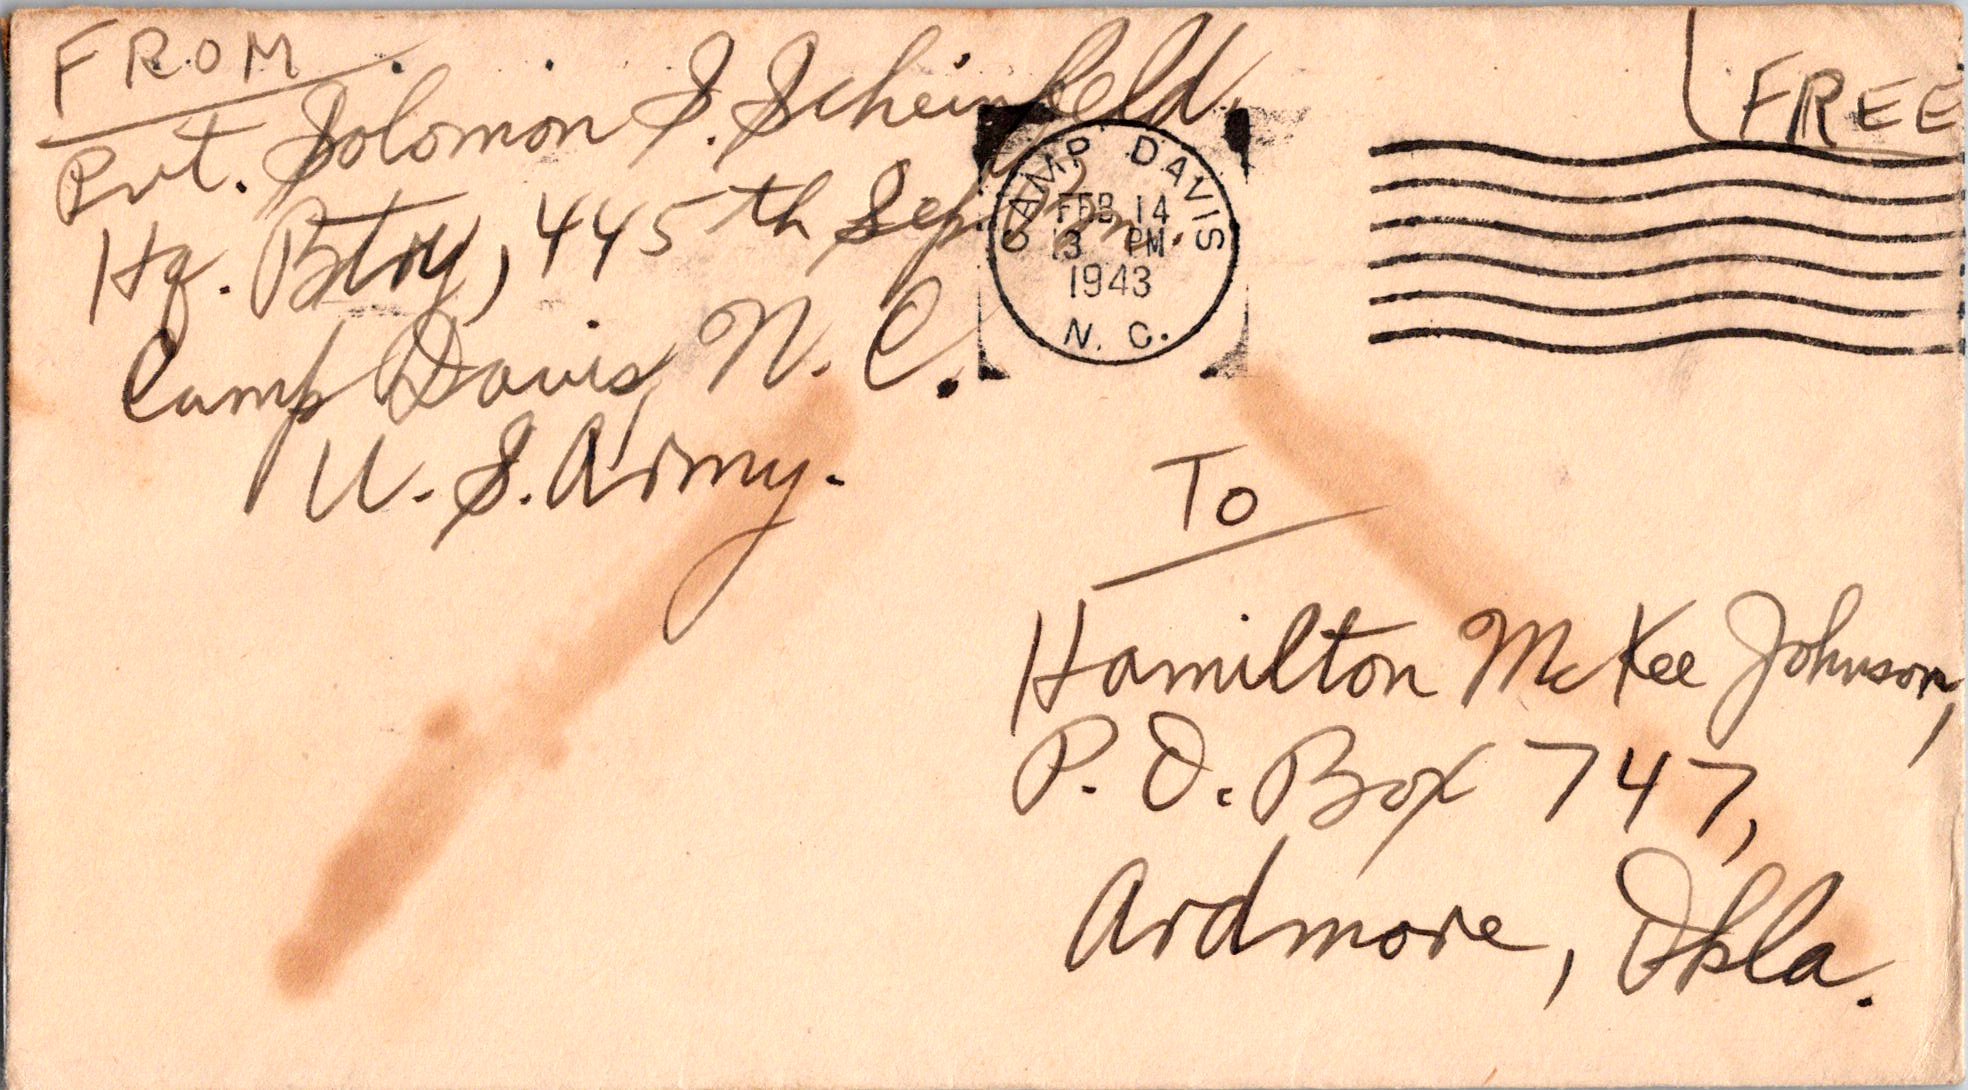 FROM
Pvt. Solomon S. Scheinfeld,
Hq. Btry, 445th Sep. Bn.
Camp Davis, N. C.
U. S. Army.
FREE
CAMP DAVIS
FEB 14
13 PM
1943
N. C.
To
Hamilton McKee Johnson,
P. O. Box 747,
Ardmore, Okla.